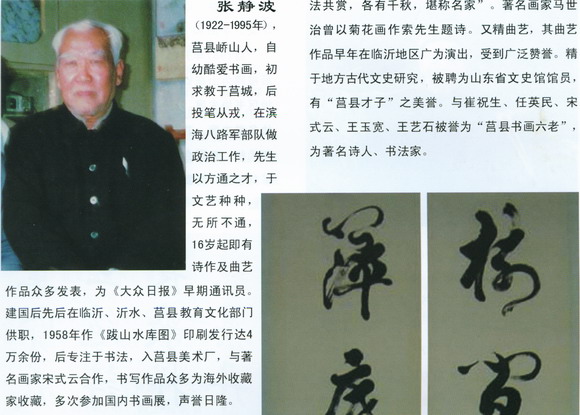 张静波
(1922-1995年),
莒县峤山人，自
幼酷爱书画，初
求教于莒城，后
投笔从戎，在滨
海八路军部队做
政治工作，先生
以方通之才，于
文艺种种，
无所不通，
16岁起即有
诗作及曲艺
作品众多发表，为《大众日报》早期通讯员。
建国后先后在临沂、沂水、莒县教育文化部门
供职，1958年作《跋山水库图》印刷发行达4
万余份，后专注于书法，入莒县美术厂，与著
名画家宋式云合作，书写作品众多为海外收藏
家收藏，多次参加国内书画展，声誉日隆。
法共赏，各有千秋，堪称名家”。著名画家马世
治曾以菊花画作索先生题诗。又精曲艺，其曲艺
作品早年在临沂地区广为演出，受到广泛赞誉。精
于地方古代文史研究，被聘为山东省文史馆馆员，
有“莒县才子”之美誉。与崔祝生、任英民、宋
式云、王玉宽、王艺石被誉为“莒县书画六老”，
为著名诗人、书法家。